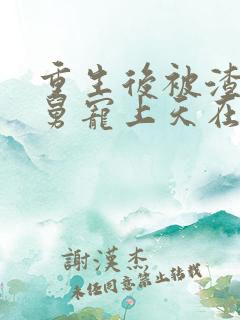 重生後被渣
舅寵上天在
謝漢杰
未經同意禁止轉載